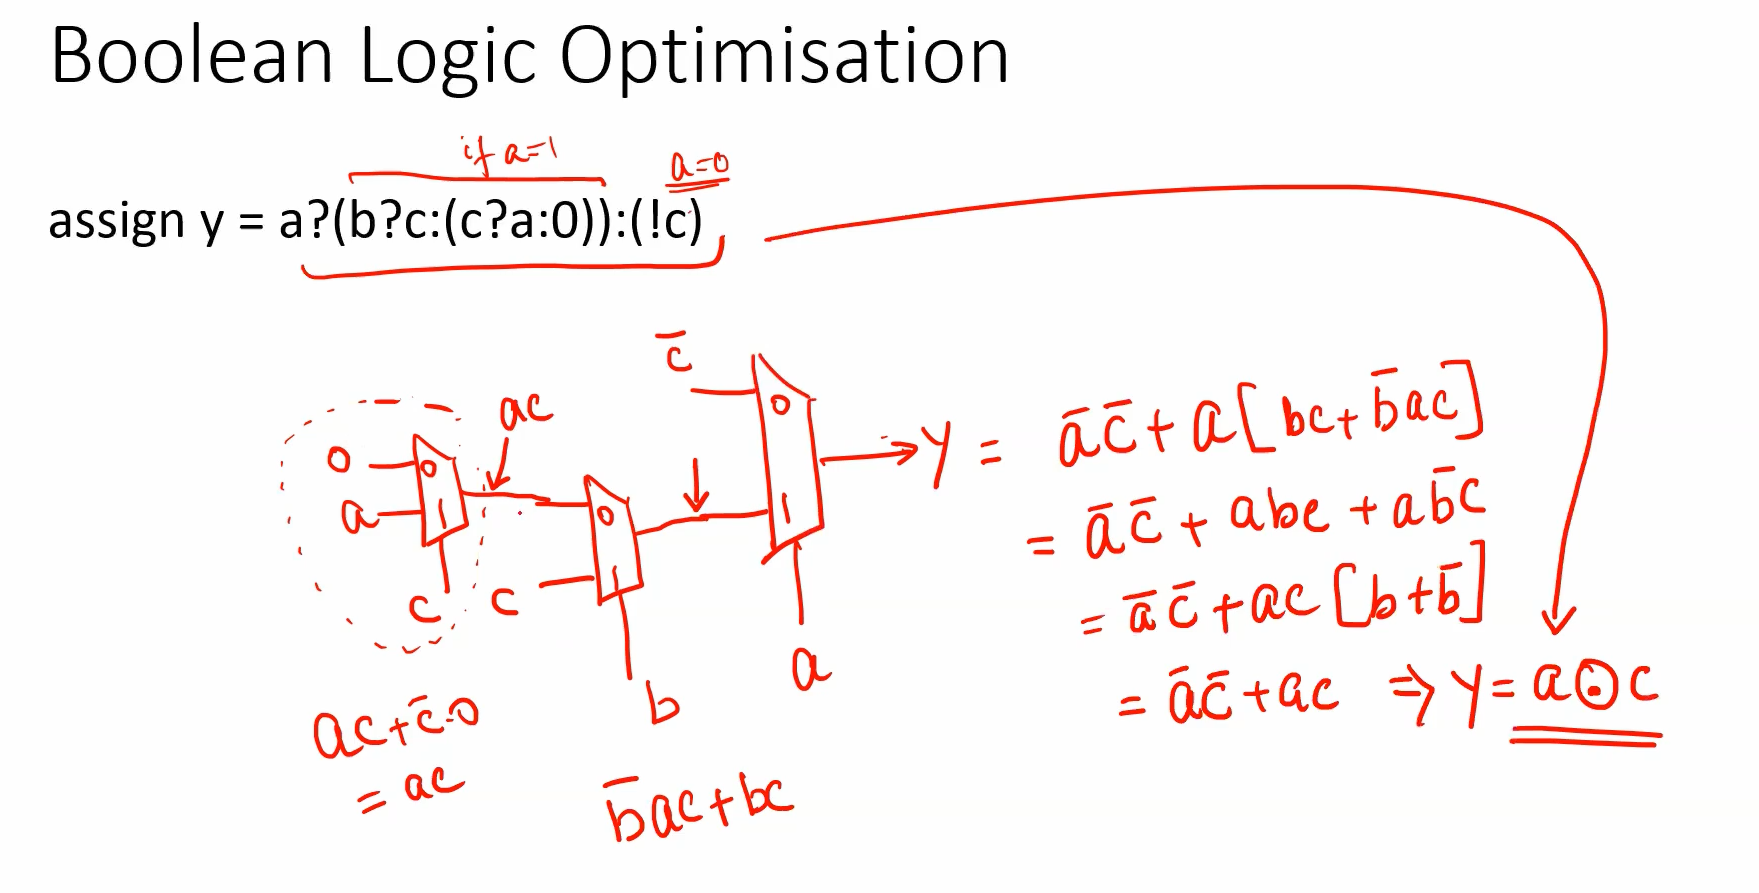 Boolean Logic Optimisation
if a=1
a=0
assign y = a?(b?c:(c?a:0)):(!c)
c̄
0
ac
0
0
a
1
c
0
c
1
b
1
a
Y = āc̄ + a[bc + b̄ac]
= āc̄ + abc + ab̄c
= āc̄ + ac[b+b̄]
= āc̄ + ac ⇒ Y = a⊙c
ac+c̄.0
= ac
b̄ac+bc